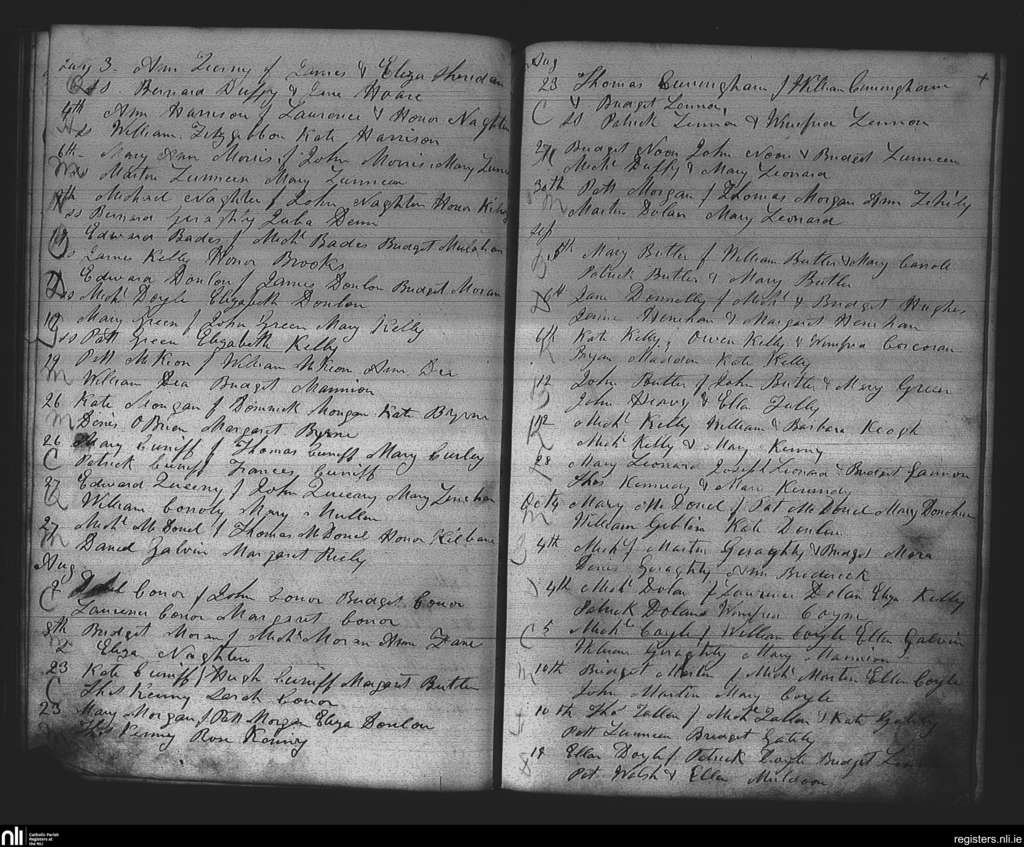 July 3. Ann Tierny of James & Eliza Sheridan
Sds Bernard Duffy & Jane Hoare
4th Ann Harrison of Laurence & Honor Naghten
ss William Fitzgibbon Kate Harrison
6th Mary Ann Morris of John Morris Mary
Martin Lunneen Mary Lunneen
Michael Naghten of John Naghten Honor
ss Bernard Geraghty Julia Dunn
Edward Bades of Michl Bades Budget
ss James Kelly Honor Brooks
Edward Donlon of James Donlon Budget Moran
ss Michl Doyle Elizabeth Donlon
Mary Green of John Green Mary Kelly
ss Patt Green Elizabeth Kelly
19 Patt McKeon of William McKeon Ann Dea
M William Dea Budget Mannion
26 Kate Morgan of Dominick Morgan Kate Byrne
M Denis O Brien Margaret Byrne
26 Mary Cuniff of Thomas Cuniff Mary Curley
C Patrick Cuniff Frances Cuniff
27 Edward of John Mary
William Conboy Mary Mullen
27 Michl McDonel of Thomas McDonel Honor Kilbane
Daniel Galvin Margaret Reily
Aug
2 Conor of John Conor Budget Conor
C Laurence Conor Margaret Conor
8th Budget Moran of Michl Moran Ann Lane
Eliza Naghten
23 Kate Cuniff of Hugh Cuniff Margaret Butler
C Thos Kenny Sarah Conor
23 Mary Morgan of Patt Morgan Eliza Donlon
Thos Kenny Rose Kenny
Aug
23 Thomas Cuningham of William Cuningham
& Budget Lennon
C ss Patrick Lennon & Winifred Lennon
27 Budget Noon John Noon & Budget Lunneen
Michl Duffy & Mary Leonard
30th Patt Morgan of Thomas Morgan Ann
M Martin Dolan Mary Leonard
Sep
5th Mary Butler of William Butler & Mary Carroll
Patrick Butler & Mary Butler
6th Jane Donnelly of Michl & Budget Hughes
Henehan & Margaret Henehan
6th Kate Kelly, Owen Kelly & Winifred Corcoran
K Bryan Madden Kate Kelly
12 John Butler of John Butler & Mary Green
John Deavy & Ellen Fally
12 Michl Kelly William & Barbara Keogh
K Michl Kelly & Mary Kenny
28 Mary Leonard Joseph Leonard & Budget Gannon
Thos Kennedy & Mary Kennedy
Oct 4 Mary McDonel of Pat McDonel Mary Donohue
M William Giblin Kate Donlon
4th Michl of Martin Geraghty & Budget Mara
Denis Geraghty Ann Broderick
4th Michl Dolan of Laurence Dolan Eliza Kelly
D Patrick Dolan & Winifred Coyne
5 Michl Coyle of William Coyle Ellen Galvin
C William Geraghty Mary Mannion
10th Bridget Martin of Michl Martin Ellen Coyle
John Martin Mary Coyle
10th Thos Fallon of Michl Fallon & Kate Gately
Patt Lunneen Bridget Gately
18 Ellen Doyle of Patrick Doyle Budget
Pat Walsh & Ellen Muldoon
nli
Catholic Parish
Registers at
the NLI
registers.nli.ie